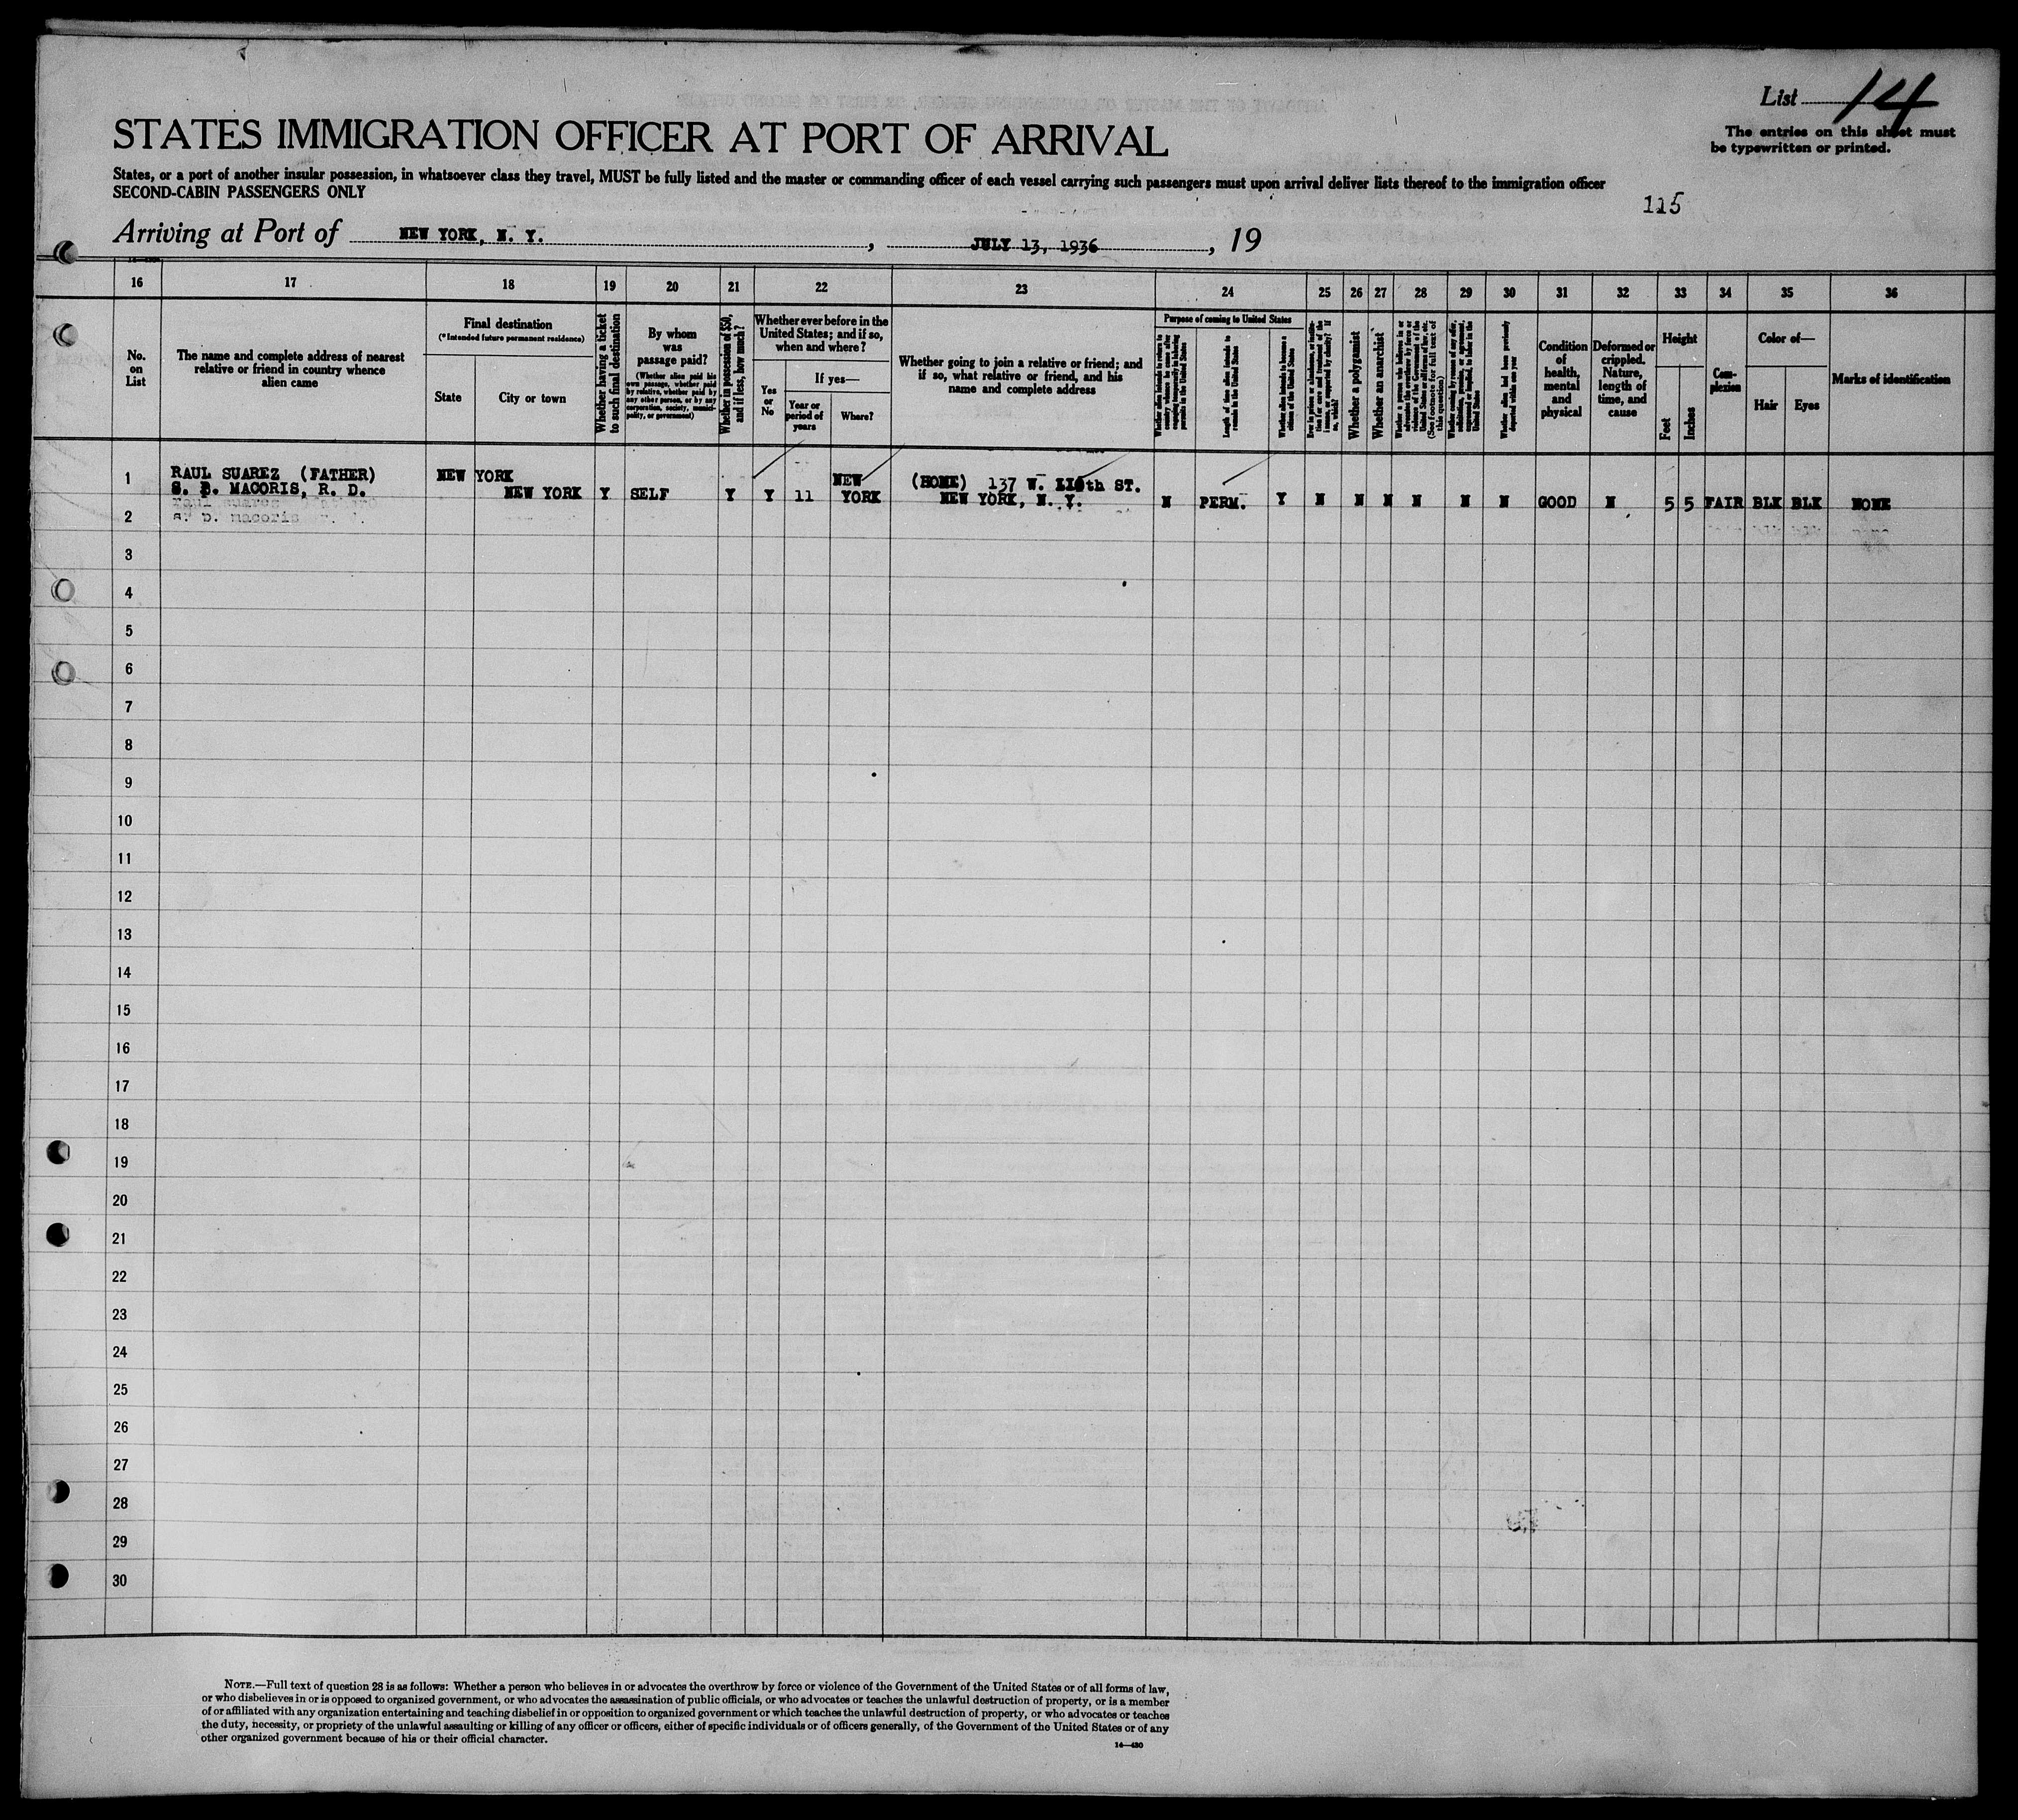 List 14
The entries on this sheet must
be typewritten or printed.
STATES IMMIGRATION OFFICER AT PORT OF ARRIVAL
States, or a port of another insular possession, in whatsoever class they travel, MUST be fully listed and the master or commanding officer of each vessel carrying such passengers must upon arrival deliver lists thereof to the immigration officer
SECOND-CABIN PASSENGERS ONLY
115
Arriving at Port of NEW YORK, N. Y. , JULY 13, 1936 , 19
16 17 18 19 20 21 22 23 24 25 26 27 28 29 30 31 32 33 34 35 36
No.
on
List
The name and complete address of nearest
relative or friend in country whence
alien came
Final destination
(*Intended future permanent residence)
State
City or town
Whether having a ticket
to such final destination
By whom
was
passage paid?
(Whether alien paid his
own passage, whether paid
by relative, whether paid by
any other person, or by any
corporation, society, munici-
pality, or government)
Whether in possession of $50,
and if less, how much?
Whether ever before in the
United States; and if so,
when and where?
Yes
or
No
If yes—
Year or
period of
years
Where?
Whether going to join a relative or friend; and
if so, what relative or friend, and his
name and complete address
Purpose of coming to United States
Whether alien intends to return to
country whence he came after
engaging temporarily in laboring
pursuits in the United States
Length of time alien intends to
remain in the United States
Whether alien intends to become a
citizen of the United States
Ever in prison or almshouse, or institu-
tion for care and treatment of the
insane, or supported by charity? If
so, which?
Whether a polygamist
Whether an anarchist
Whether a person who believes in or
advocates the overthrow by force or
violence of the Government of the
United States or all forms of law, etc.
(See footnote for full text of
this question)
Whether coming by reason of any offer,
solicitation, promise, or agreement,
expressed or implied, to labor in the
United States
Whether alien had been previously
deported within one year
Condition
of
health,
mental
and
physical
Deformed or
crippled.
Nature,
length of
time, and
cause
Height
Feet
Inches
Com-
plexion
Color of—
Hair
Eyes
Marks of identification
1 RAUL SUAREZ (FATHER) NEW YORK NEW (HOME) 137 W. 110th ST.
S. P. MACORIS, R. D. NEW YORK Y SELF Y Y 11 YORK NEW YORK, N. Y. N PERM. Y N N N N N N GOOD N 5 5 FAIR BLK BLK NONE
2
3
4
5
6
7
8
9
10
11
12
13
14
15
16
17
18
19
20
21
22
23
24
25
26
27
28
29
30
NOTE.—Full text of question 28 is as follows: Whether a person who believes in or advocates the overthrow by force or violence of the Government of the United States or of all forms of law,
or who disbelieves in or is opposed to organized government, or who advocates the assassination of public officials, or who advocates or teaches the unlawful destruction of property, or is a member
of or affiliated with any organization entertaining and teaching disbelief in or opposition to organized government or which teaches the unlawful destruction of property, or who advocates or teaches
the duty, necessity, or propriety of the unlawful assaulting or killing of any officer or officers, either of specific individuals or of officers generally, of the Government of the United States or of any
other organized government because of his or their official character.
14—430